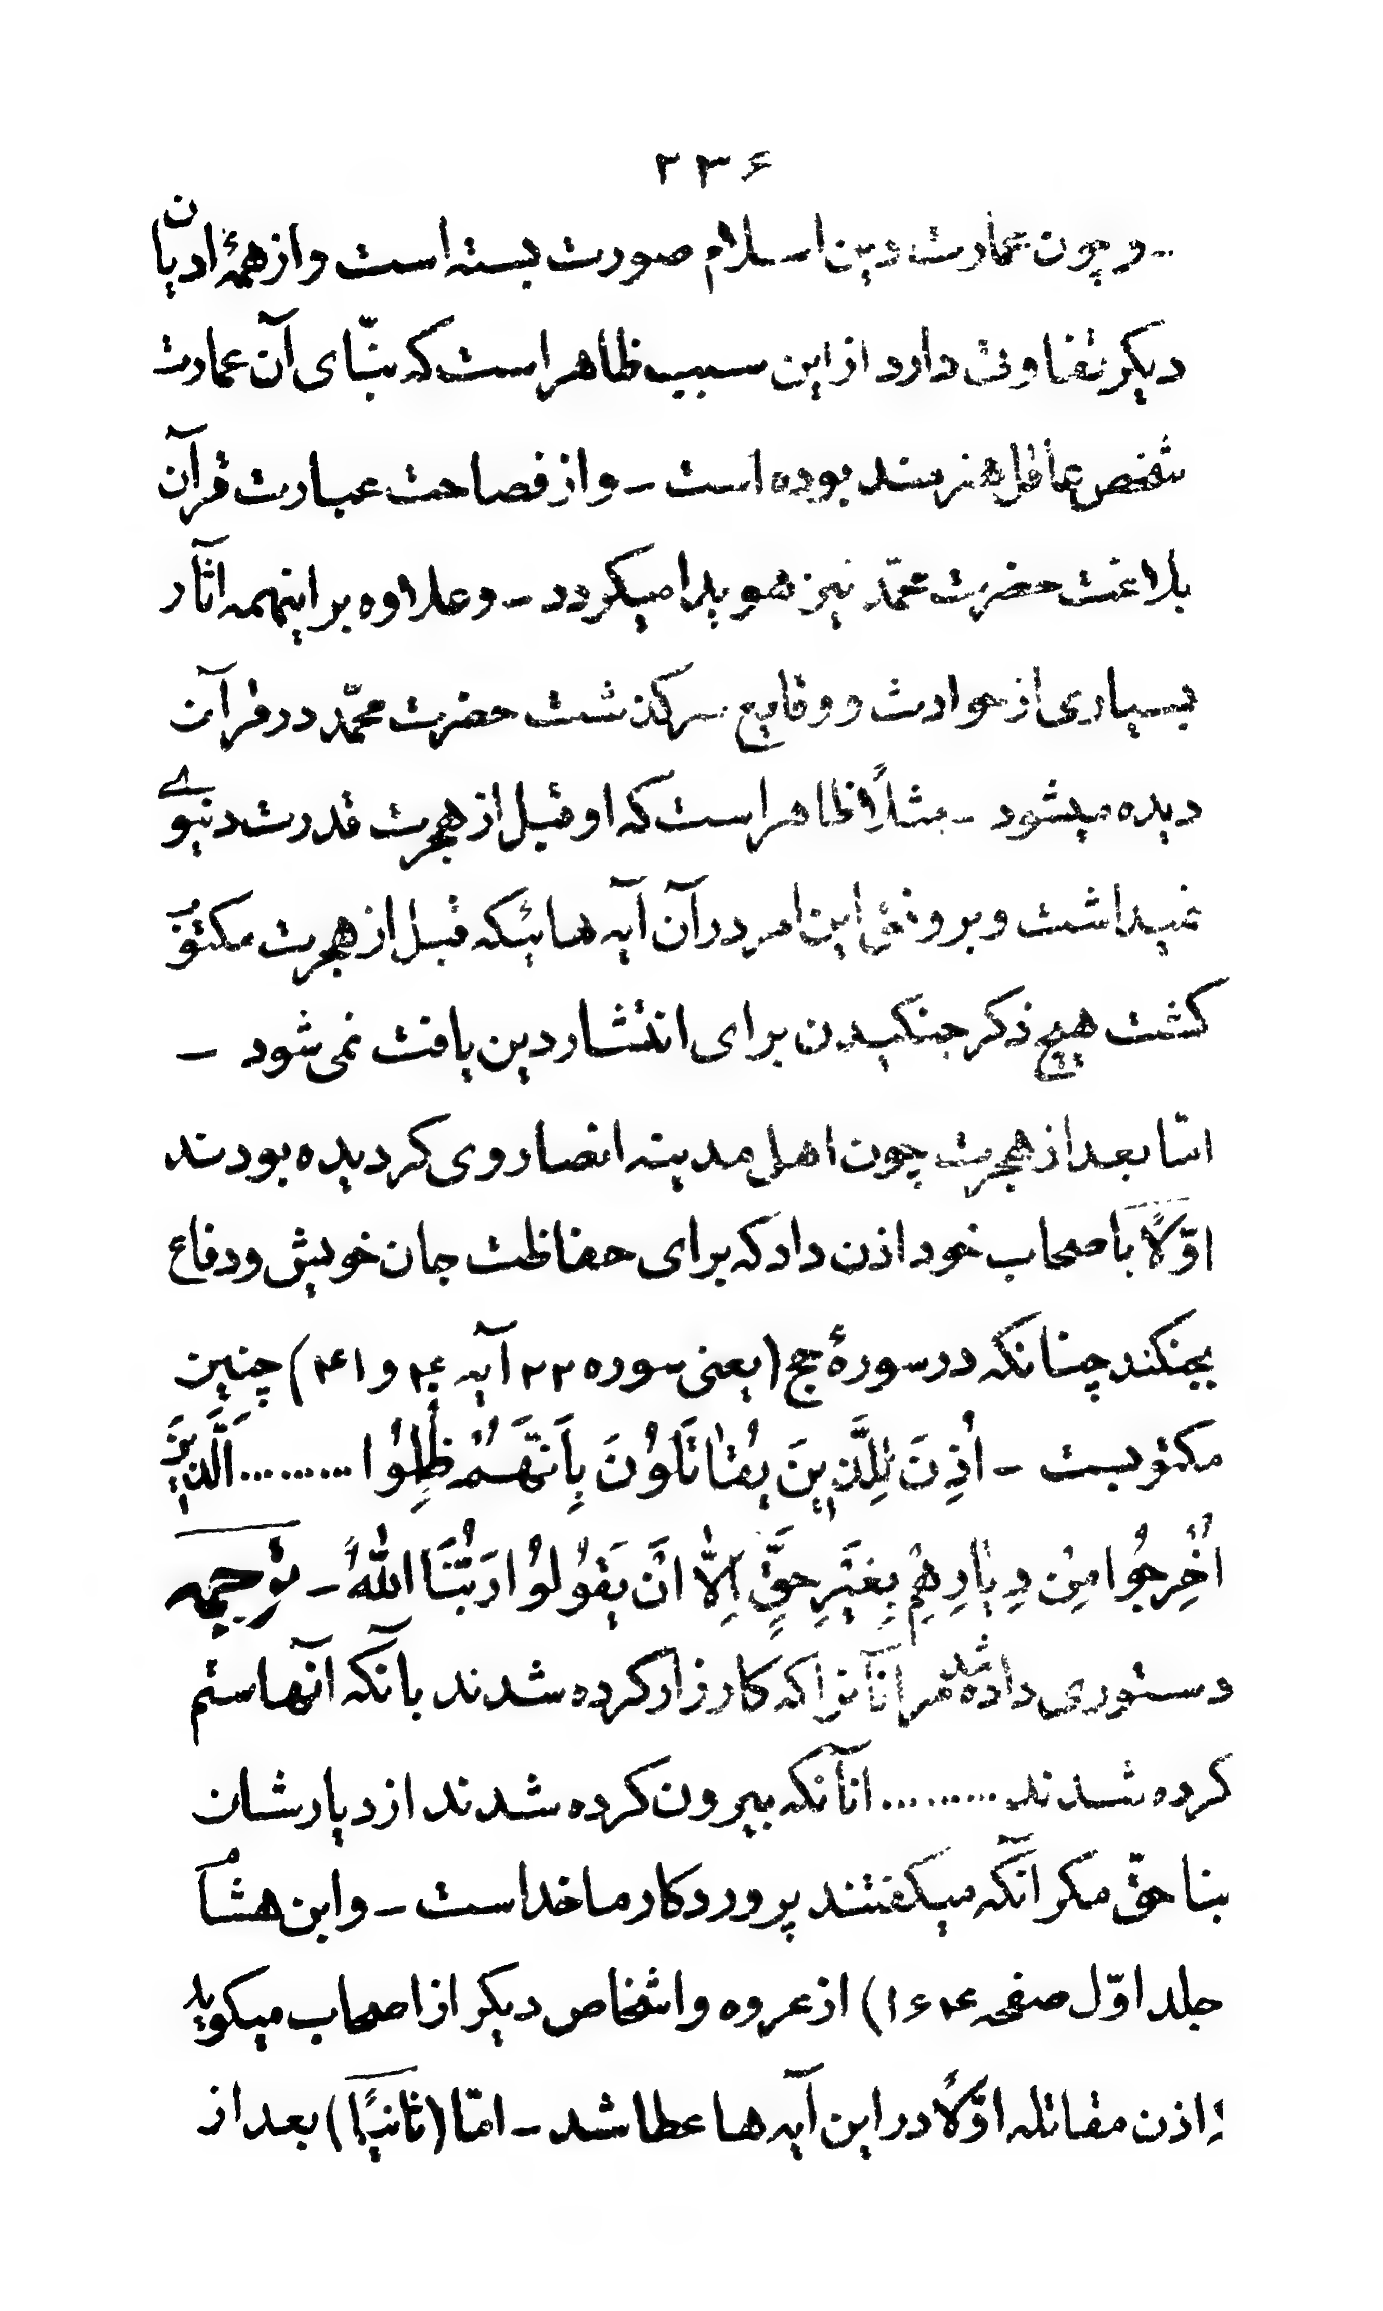 ۲۳۶
ـ و چون عمارت دین اسلام صورت بسته است و از همهٔ ادیان
دیکر تفاوتی دارد از این سبب ظاهر است که بنّای آن عمارت
شخص عاقل هنرمند بوده است ــ و از فصاحت عبارت قرآن
بلاغت حضرت محمّد نیز هویدا میکردد ــ و علاوه بر اینهمه اثآر
بسیاری از حوادث و وقایع سرکذشت حضرت محمّد در قرآن
دیده میشود ــ مثلاً ظاهر است که او قبل از هجرت قدرت دنیوی
نمیداشت و بر وفق این امر در آن آیه هائیکه قبل از هجرت مکتوب
کشت هیچ ذکر جنکیدن برای انتشار دین یافت نمی شود ــ
امّا بعد از هجرت چون اهل مدینه انصار وی کردیده بودند
اوّلاً باصحاب خود اذن داد که برای حفاظت جان خویش و دفاع
بجنکند چنانکه در سورهٔ حج (یعنی سوره ۲۲ آیه ۴۰ و ۴۱) چنین
مکتوبست ــ اُذِنَ لِلَّذِینَ یُقٰاتَلُونَ بِاَنَّهُمْ ظُلِمُوا ......... اَلَّذِینَ
اُخْرِجُوا مِنْ دِیٰارِهِمْ بِغَیْرِ حَقٍّ اِلاّٰ اَنْ یَقُولُوا رَبُّنَا اللّٰهُ ــ ترجمه
دستوری داده شد مر انآنرا که کارزار کرده شدند بآنکه آنها ستم
کرده شدند ......... انآنکه بیرون کرده شدند از دیارشان
بناحقّ مکر آنکه میکفتند پروردکار ما خداست ــ و ابن هشام
جلد اوّل صفحه ۱۶۴) از عروه و اشخاص دیکر از اصحاب میکوید
اذن مقاتله اوّلاً در این آیه ها عطا شد ــ امّا (ثانیًا) بعد از